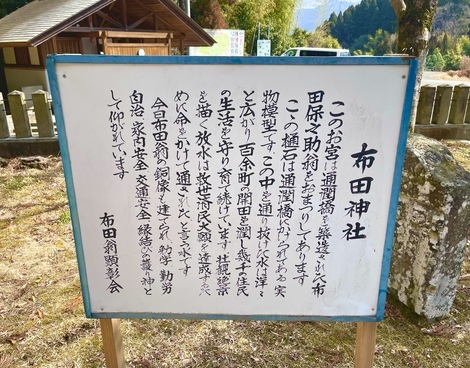 布田神社
このお宮は通潤橋を築造された布
田保之助翁をおまつりしてあります
この樋石は通潤橋にかけられてある実
物模型です この中を通り抜けた水は洋々
と広がり 百余町の開田を潤し幾千の住民
の生活を守り育て続けています 壮観絶景
を描く放水は救世済民大願を達成する
めに命をかけて通された
今日布田翁の銅像も建てられ 勤労
自治 家内安全 交通安全 縁結びの護り神と
して仰がれています
布田翁顕彰会